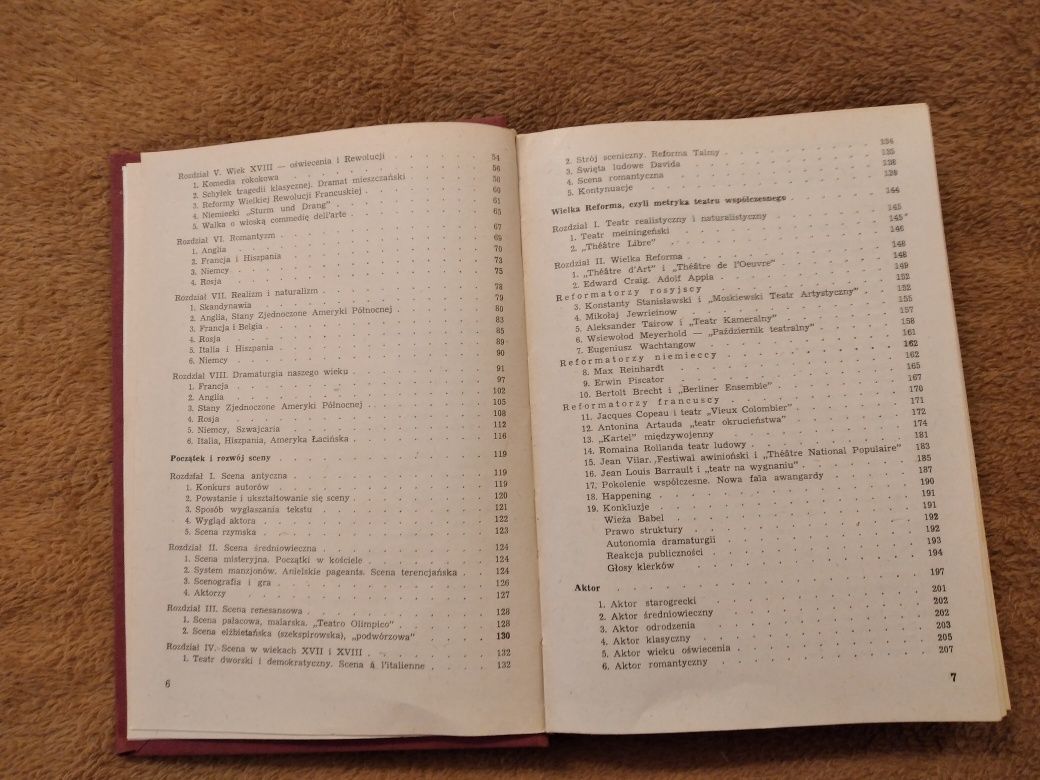 Rozdział V. Wiek XVIII — oświecenia i Rewolucji 54
1. Komedia rokokowa 56
2. Schyłek tragedii klasycznej. Dramat mieszczański 58
3. Reformy Wielkiej Rewolucji Francuskiej 60
4. Niemiecki „Sturm und Drang" 61
5. Walka o włoską commedię dell'arte 65
Rozdział VI. Romantyzm 67
1. Anglia 69
2. Francja i Hiszpania 70
3. Niemcy 73
4. Rosja 75
Rozdział VII. Realizm i naturalizm 78
1. Skandynawia 79
2. Anglia, Stany Zjednoczone Ameryki Północnej 80
3. Francja i Belgia 83
4. Rosja 85
5. Italia i Hiszpania 89
6. Niemcy 90
Rozdział VIII. Dramaturgia naszego wieku 91
1. Francja 97
2. Anglia 102
3. Stany Zjednoczone Ameryki Północnej 105
4. Rosja 108
5. Niemcy, Szwajcaria 112
6. Italia, Hiszpania, Ameryka Łacińska 116
Początek i rozwój sceny 119
Rozdział I. Scena antyczna 119
1. Konkurs autorów 119
2. Powstanie i ukształtowanie się sceny 120
3. Sposób wygłaszania tekstu 121
4. Wygląd aktora 122
5. Scena rzymska 123
Rozdział II. Scena średniowieczna 124
1. Scena misteryjna. Początki w kościele 124
2. System mansjonów. Anielskie pageants. Scena terencjańska 124
3. Scenografia i gra 126
4. Aktorzy 127
Rozdział III. Scena renesansowa 128
1. Scena pałacowa, malarska. „Teatro Olimpico" 128
2. Scena elżbietańska (szekspirowska), „podwórzowa" 130
Rozdział IV. Scena w wiekach XVII i XVIII 132
1. Teatr dworski i demokratyczny. Scena à l'italienne 132
6
2. Strój sceniczny. Reforma Talmy 134
3. Święta ludowe Davida 135
4. Scena romantyczna 136
5. Kontynuacje 139
Wielka Reforma, czyli metryka teatru współczesnego 144
Rozdział I. Teatr realistyczny i naturalistyczny 145
1. Teatr meiningeński 145
2. „Théâtre Libre" 146
Rozdział II. Wielka Reforma 148
1. „Théâtre d'Art" i „Théâtre de l'Oeuvre" 148
2. Edward Craig. Adolf Appia 149
Reformatorzy rosyjscy 152
3. Konstanty Stanisławski i „Moskiewski Teatr Artystyczny" 152
4. Mikołaj Jewrieinow 155
5. Aleksander Tairow i „Teatr Kameralny" 157
6. Wsiewołod Meyerhold — „Październik teatralny" 158
7. Eugeniusz Wachtangow 161
Reformatorzy niemieccy 162
8. Max Reinhardt 162
9. Erwin Piscator 165
10. Bertolt Brecht i „Berliner Ensemble" 167
Reformatorzy francuscy 170
11. Jacques Copeau i teatr „Vieux Colombier" 171
12. Antonina Artauda „teatr okrucieństwa" 172
13. „Kartel" międzywojenny 174
14. Romaina Rollanda teatr ludowy 181
15. Jean Vilar. Festiwal awinioński i „Théâtre National Populaire" 183
16. Jean Louis Barrault i „teatr na wygnaniu" 185
17. Pokolenie współczesne. Nowa fala awangardy 187
18. Happening 190
19. Konkluzje 191
Wieża Babel 191
Prawo struktury 192
Autonomia dramaturgii 192
Reakcja publiczności 193
Głosy klerków 194
Aktor 197
1. Aktor starogrecki 201
2. Aktor średniowieczny 202
3. Aktor odrodzenia 202
4. Aktor klasyczny 203
5. Aktor wieku oświecenia 205
6. Aktor romantyczny 207
7